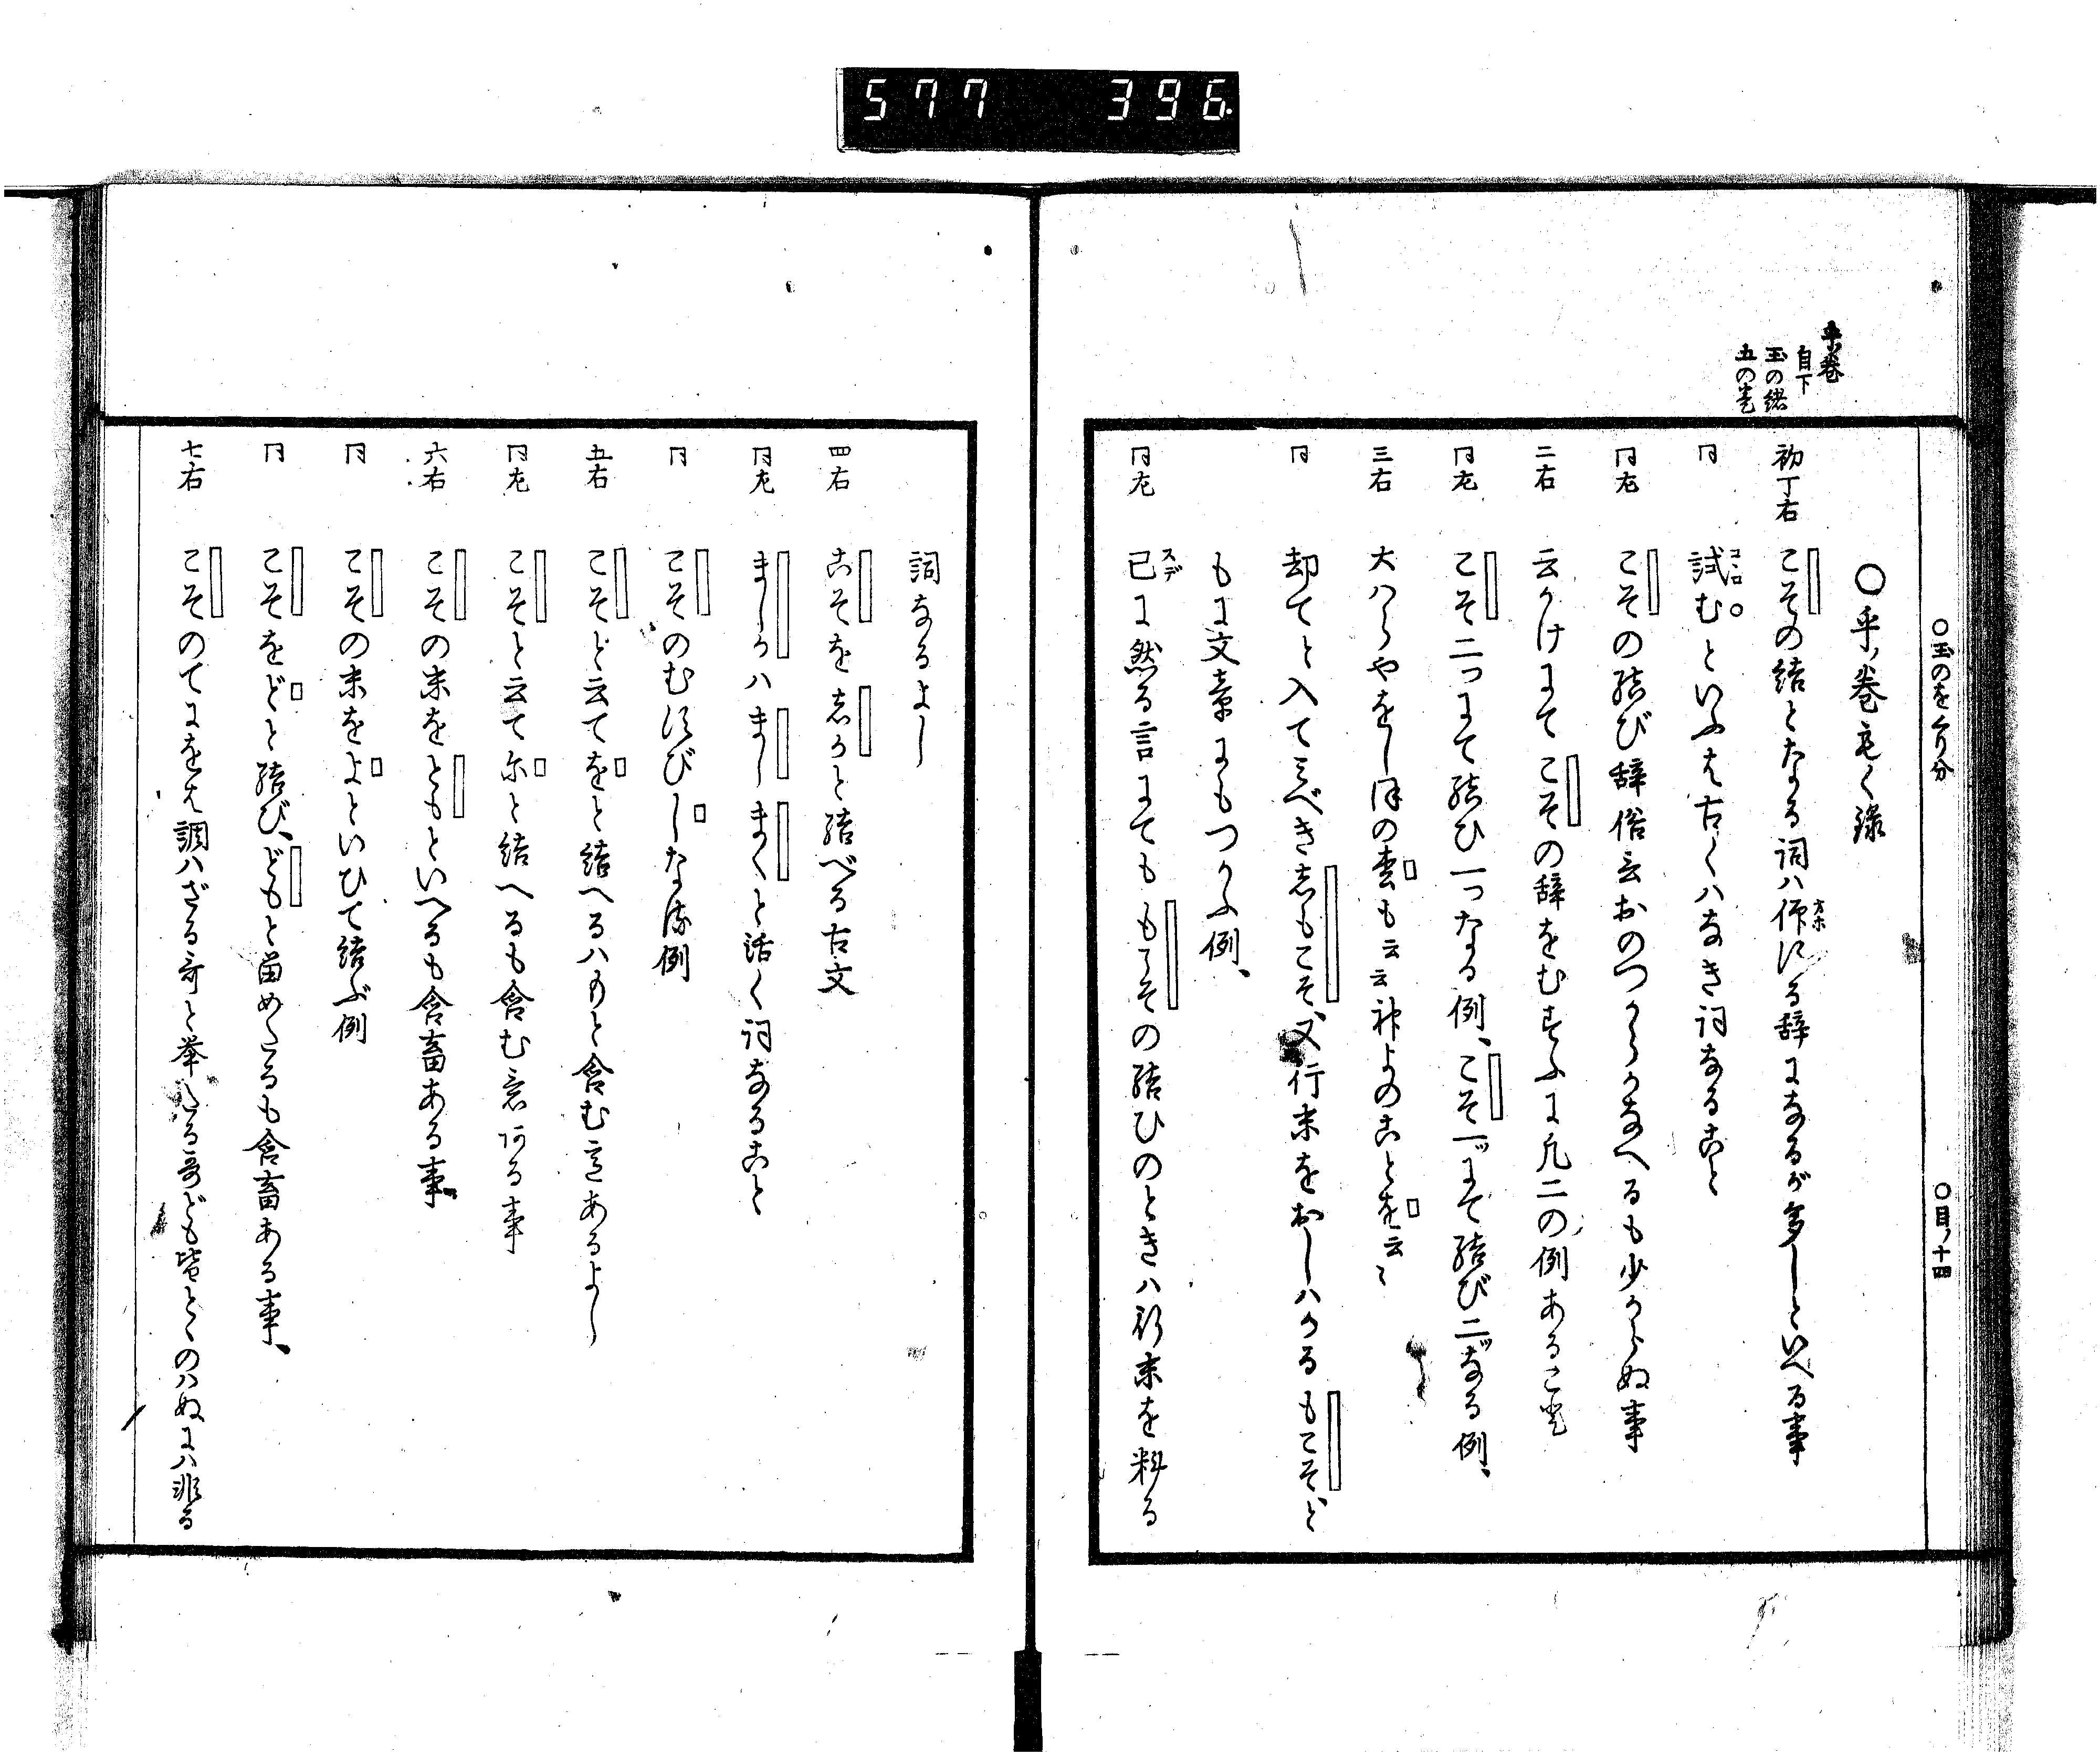 577 396
乎巻
自下
玉の緒
五の巻
○玉のをくり分 ○目ノ十四
○乎ノ巻もく録
初丁右 こその結となる詞ハ係ける辞になるが多しといへる事
同 試むといふハ古くハなき詞なること
同左 こその結び辞俗言おのつからかなへるも少からぬ事
二右 云かけにてこその辞をむすふに凡二の例あること
同左 こそ二つにて結ひ一つなる例、こそ一ツにて結び二ツなる例、
三右 大ハらやをしほの山も云云神よのことを云〻
同 却てと入てミべき志もこそ、又行末をおしハかるもこそ、ど
もに文章にもつかふ例、
同左 已に然る言にても もこその結ひのときハ行末を料る
詞なるよし
四右 こそを志かと結べる古文
同左 ましかハ ましまくと活く詞なること
同 こそのむすびしなる例
五右 こそと云てをと結へるハものと含む意あるよし
同左 こそと云てにと結へるも含む意ある事
六右 こその末をともといへるも含畜ある事
同 こその末をよといひて結ぶ例
同 こそをどと結び、どもと留めたるも含畜ある事、
七右 こそのてにをは調ハざる哥と挙たる哥ども皆とゝのハぬにハ非る